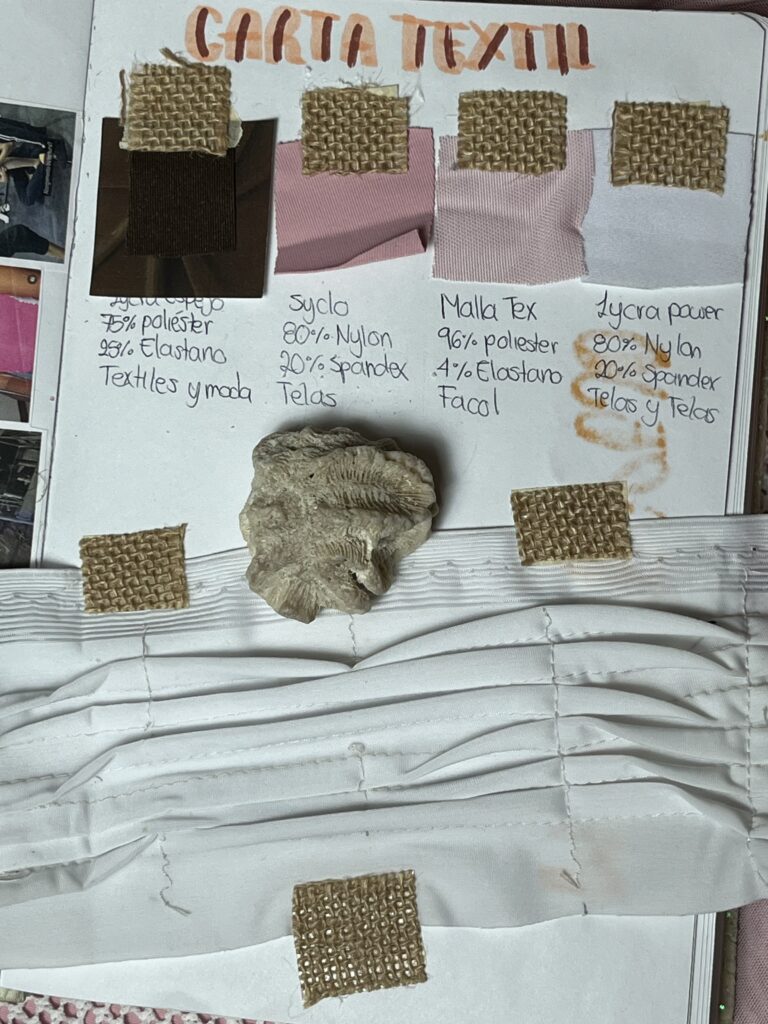 CARTA TEXTIL
Lycra espejo
75% poliéster
25% Elastano
Textiles y moda
Syclo
80% Nylon
20% Spandex
Telas
Malla Tex
96% poliester
4% Elastano
Facol
Lycra power
80% Nylon
20% Spandex
Telas y Telas